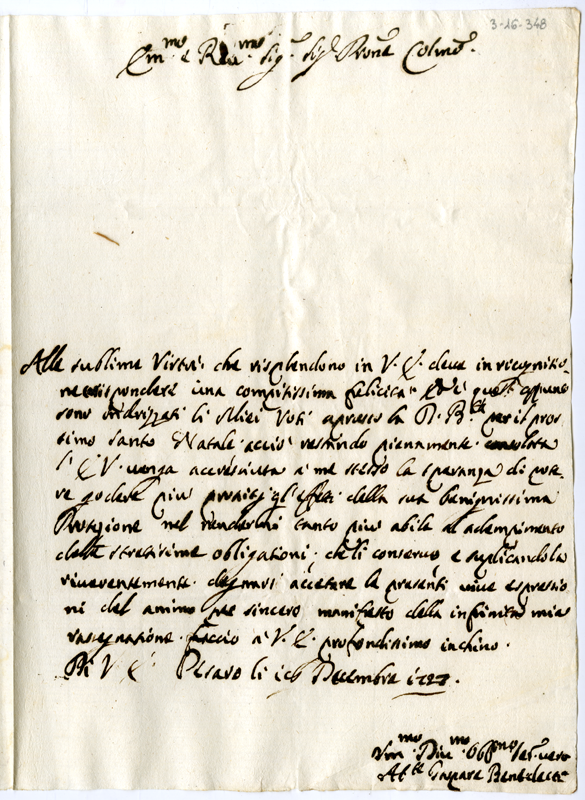 3-26-348
Em.mo e Re.mo Sig.r Sig.r Prone Colmo
Alle sublime Virtù che risplendono in V. E. deve in ricognitio
ne rispondere una compitissima felicità, à quest
sono indrizzati li Miei Voti apresso la D. B.tà per il pros
simo Santo Natale acciò restando pienamente consolata
l' E V. venga accresciuta à me stesso la speranza di pote
re godere più gl'effetti della sua benignissima
Protezione nel rendermi tanto più abile al adempimento
delle stretissime obligationi che li conservo e suplicandola
riverentemente degnarsi accetare le presenti vive espressio
ni del animo per sincero manifesto della infinita mia
rasegnatione faccio à V. E. profondissimo inchino.
Di V. E. Pesaro li Decembre 1727.
Um.mo Div.mo Obb.mo Ser.
Ab.te Gaspare